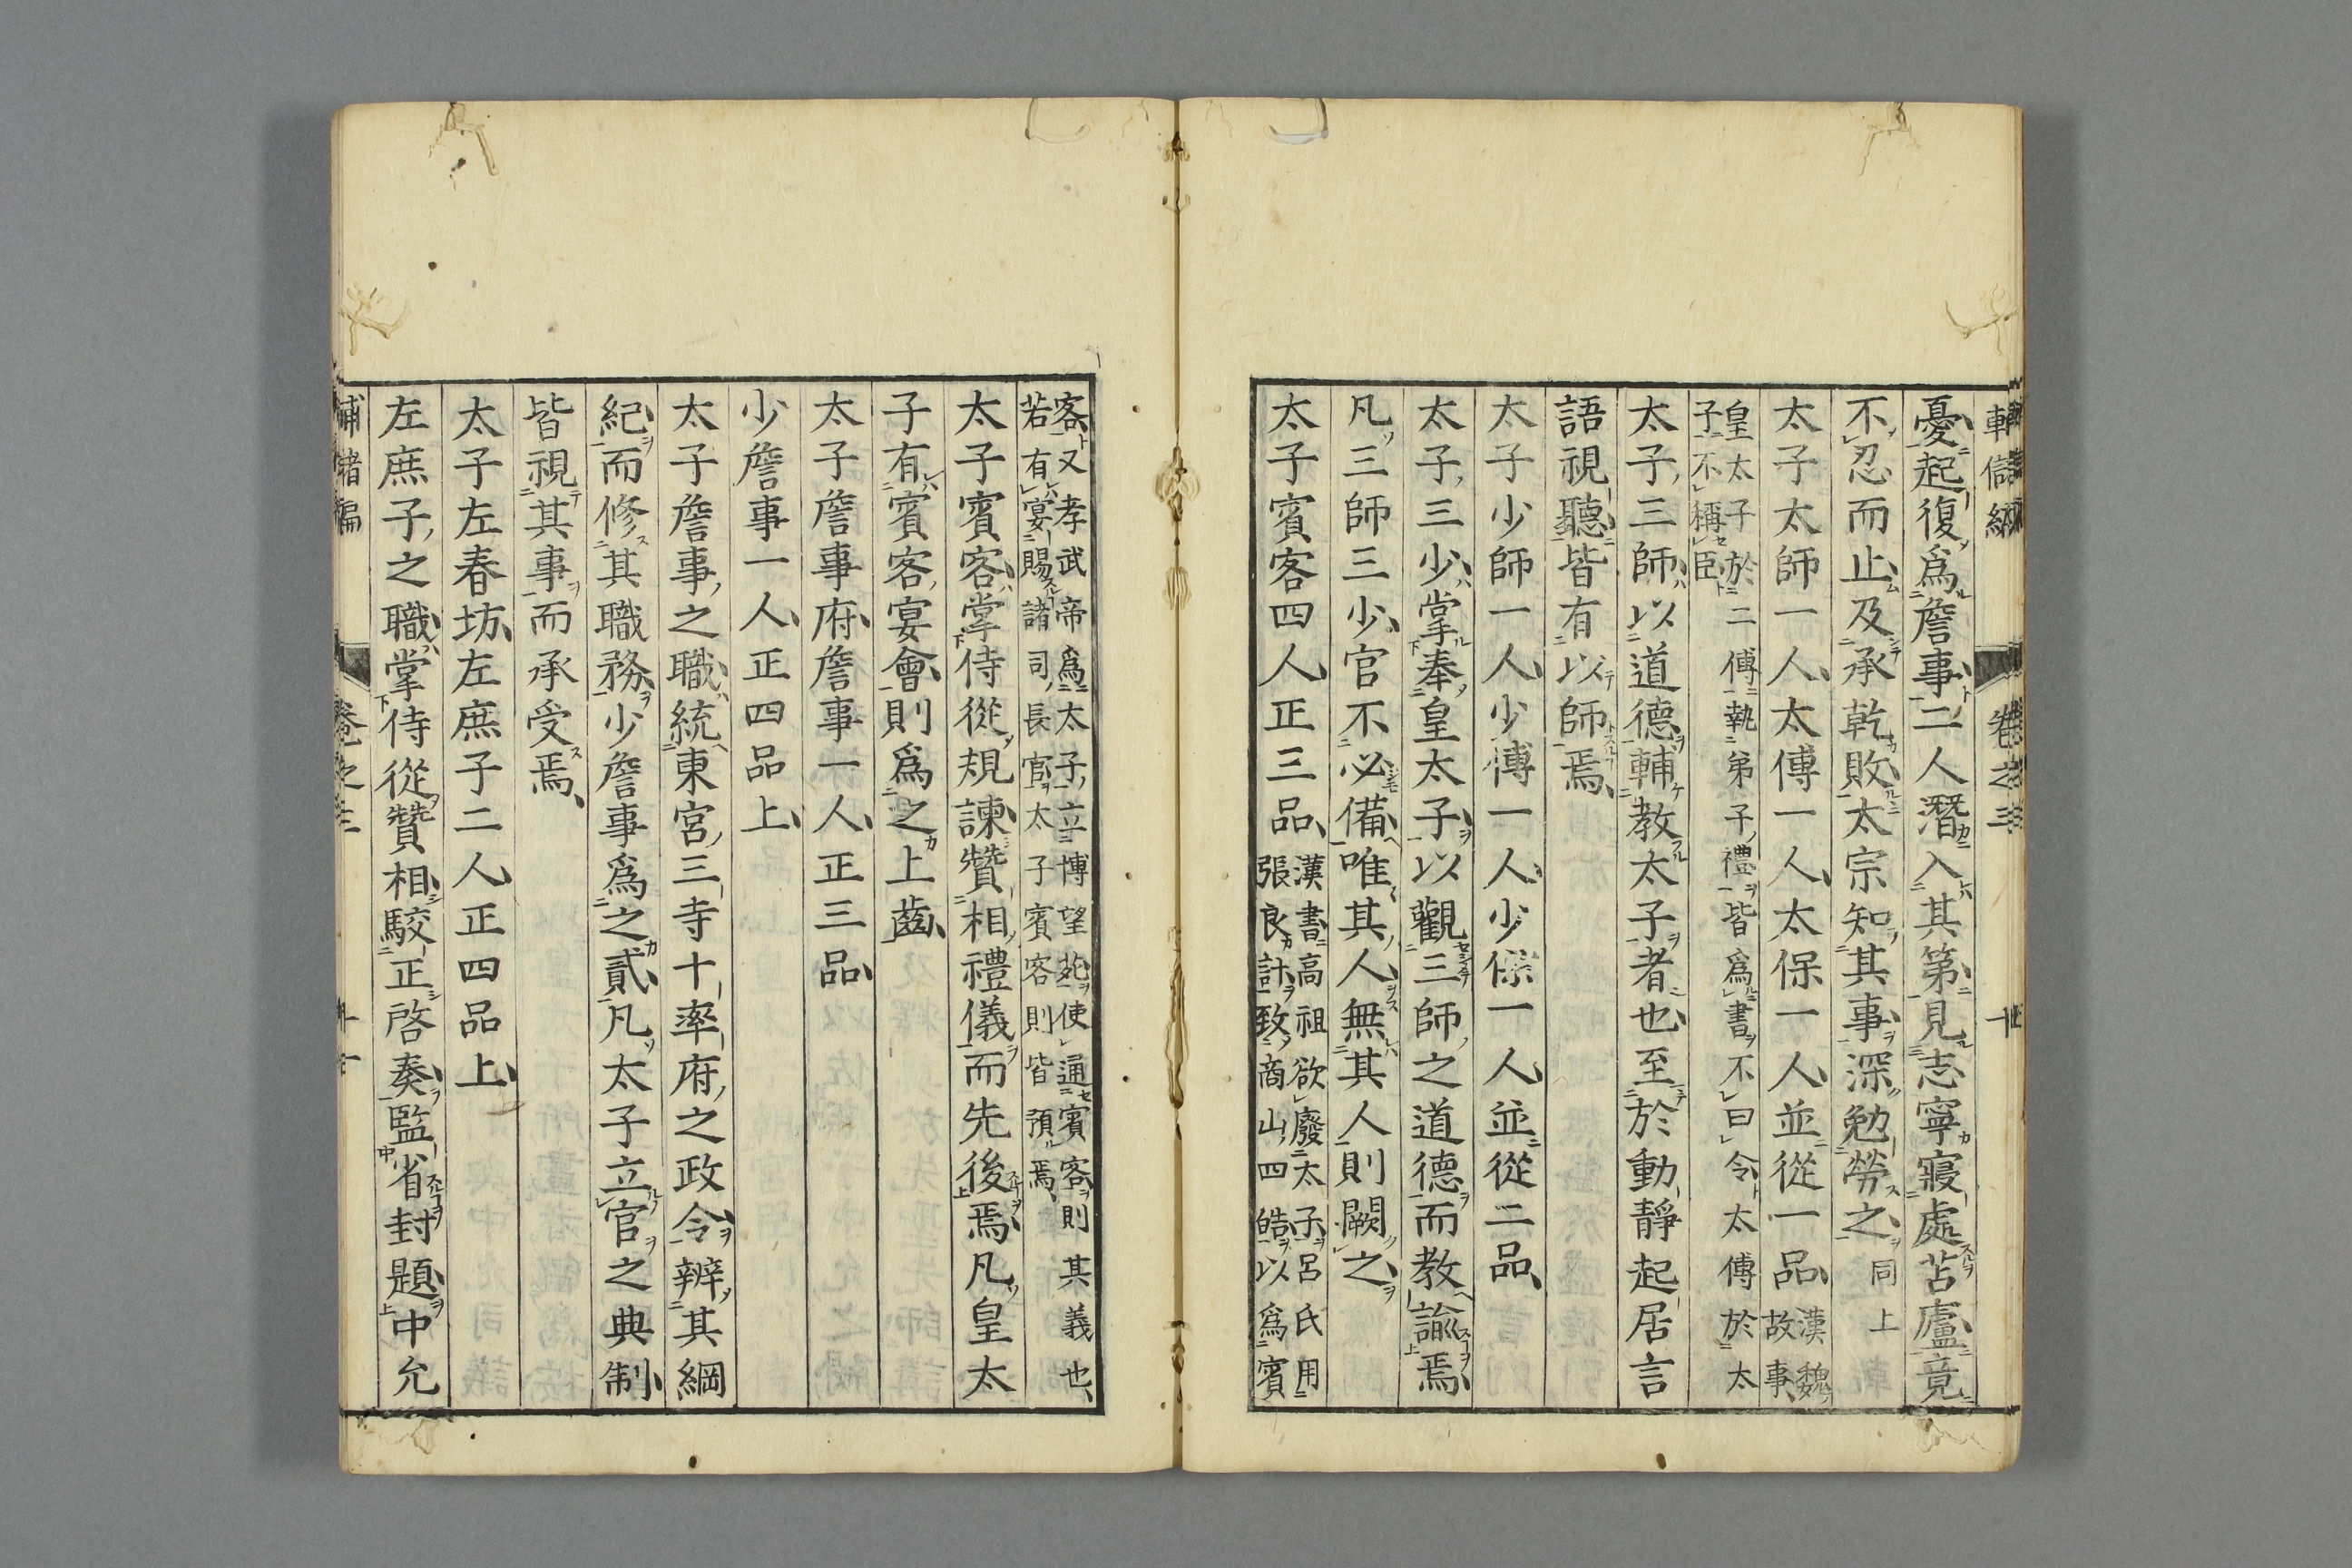 憂起復爲詹事二人潛入其第見志寧寢處苫廬竟
不忍而止及承乾敗太宗知其事深勉勞之同上
太子太師一人太傅一人太保一人並從一品漢魏故事
皇太子於二傅執弟子禮皆爲書不曰令太傅於太
子不稱臣
太子三師以道德輔教太子者也至於動靜起居言
語視聽皆有以師焉
太子少師一人少傅一人少保一人並從二品
太子三少掌奉皇太子以觀三師之道德而教諭焉
凡三師三少官不必備唯其人無其人則闕之
太子賓客四人正三品漢書高祖欲廢太子呂氏用
張良計致商山四皓以爲賓
客又孝武帝爲太子立博望苑使通賓客則其義也
若有宴賜諸司長官太子賓客則皆預焉
太子賓客掌侍從規諫贊相禮儀而先後焉凡皇太
子有賓客宴會則爲之上齒
太子詹事府詹事一人正三品
少詹事一人正四品上
太子詹事之職統東宮三寺十率府之政令辨其綱
紀而修其職務少詹事爲之貳凡太子立官之典制
皆視其事而承受焉
太子左春坊左庶子二人正四品上
左庶子之職掌侍從贊相駮正啓奏監省封題中允
卷之三